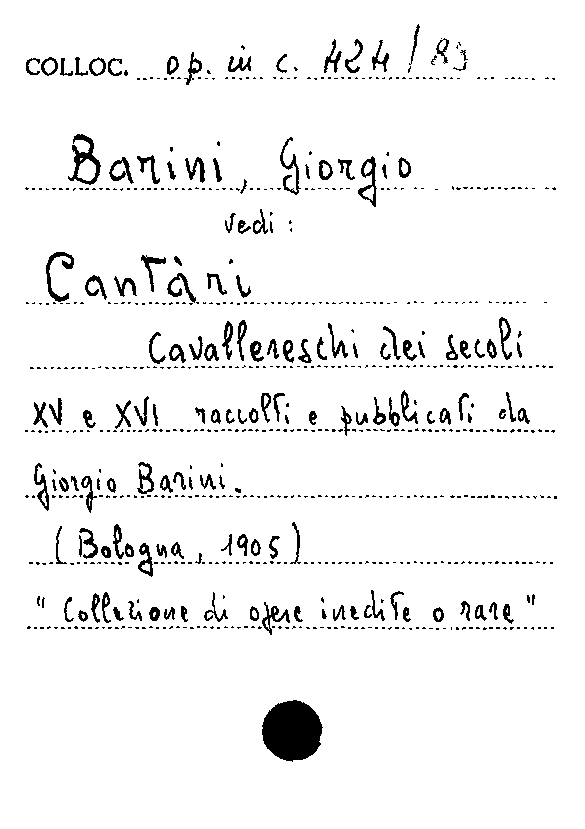 COLLOC. op. in c. 424/89
Barini, Giorgio
vedi:
Cantàri
Cavallereschi dei secoli
XV e XVI raccolti e pubblicati da
Giorgio Barini.
(Bologna, 1905)
"Collezione di opere inedite o rare"